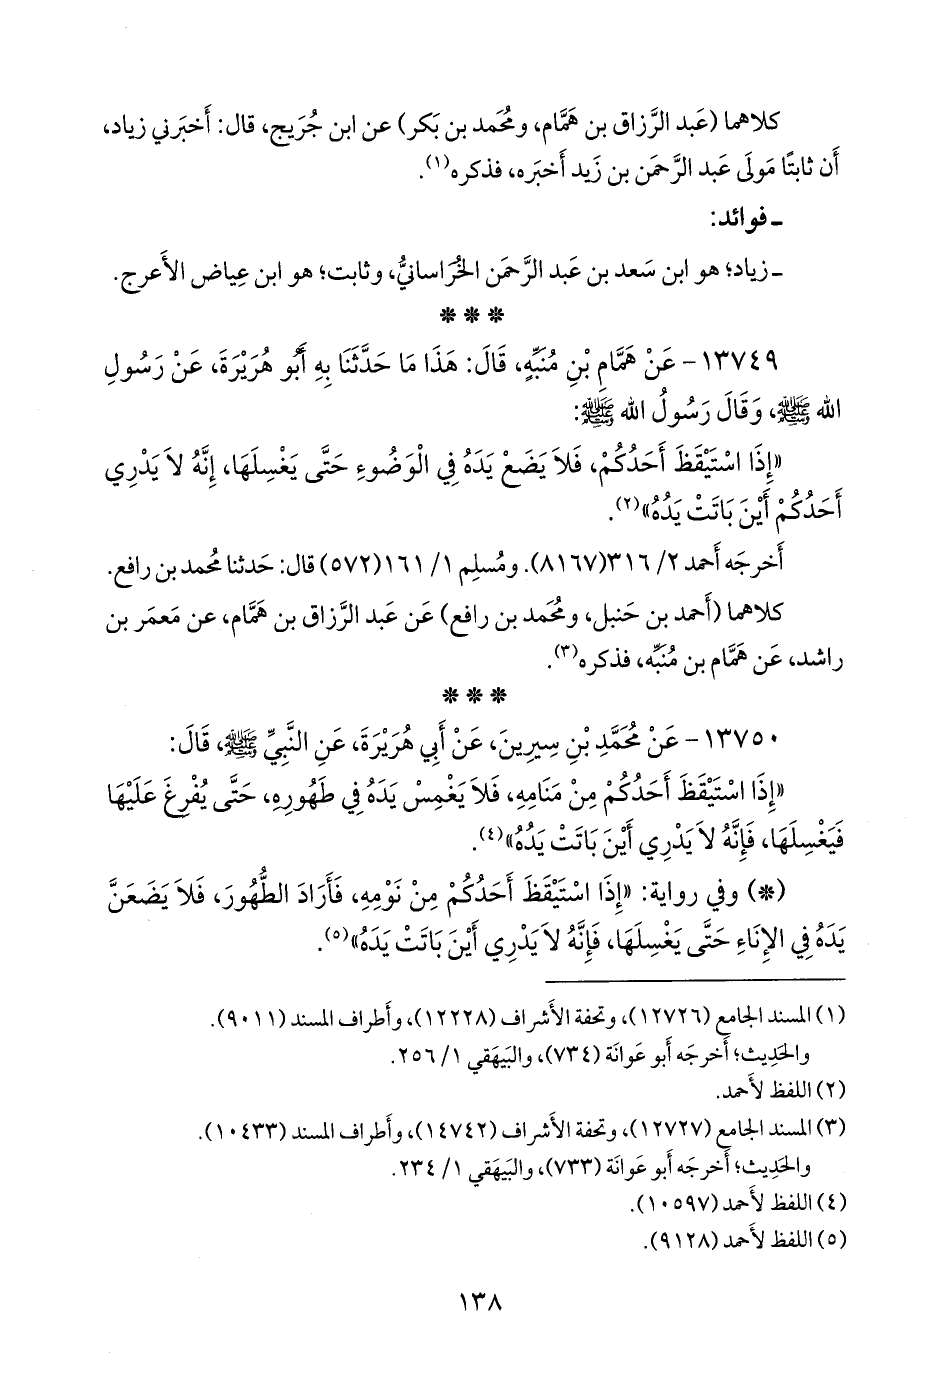 كلاهما (عَبد الرَّزاق بن هَمَّام، ومُحَمد بن بَكر) عن ابن جُرَيج، قال: أَخبَرني زياد،
أَن ثابتًا مَولَى عَبد الرَّحمَن بن زَيد أَخبَره، فذكره(١).
ـ فوائد:
ـ زياد؛ هو ابن سَعد بن عَبد الرَّحمَن الخُرَاسانيُّ، وثابت؛ هو ابن عِياض الأَعرج.
* * *
١٣٧٤٩ - عَنْ هَمَّامِ بْنِ مُنَبِّهٍ، قَالَ: هَذَا مَا حَدَّثَنَا بِهِ أَبُو هُرَيْرَةَ، عَنْ رَسُولِ
الله ﷺ، وَقَالَ رَسُولُ الله ﷺ:
«إِذَا اسْتَيْقَظَ أَحَدُكُمْ، فَلاَ يَضَعْ يَدَهُ فِي الْوَضُوءِ حَتَّى يَغْسِلَهَا، إِنَّهُ لاَ يَدْرِي
أَحَدُكُمْ أَيْنَ بَاتَتْ يَدُهُ»(٢).
أَخرجَه أَحمد ٢/ ٣١٦(٨١٦٧). ومُسلِم ١/ ١٦١(٥٧٢) قال: حَدثنا مُحمد بن رافع.
كلاهما (أَحمد بن حَنبل، ومُحَمد بن رافع) عَن عَبد الرَّزاق بن هَمَّام، عن مَعمَر بن
راشد، عَن هَمَّام بن مُنَبِّه، فذكره(٣).
* * *
١٣٧٥٠ - عَنْ مُحَمَّدِ بْنِ سِيرِينَ، عَنْ أَبِي هُرَيْرَةَ، عَنِ النَّبِيِّ ﷺ، قَالَ:
«إِذَا اسْتَيْقَظَ أَحَدُكُمْ مِنْ مَنَامِهِ، فَلاَ يَغْمِسْ يَدَهُ فِي طَهُورِهِ، حَتَّى يُفْرِغَ عَلَيْهَا
فَيَغْسِلَهَا، فَإِنَّهُ لاَ يَدْرِي أَيْنَ بَاتَتْ يَدُهُ»(٤).
(*) وفي رواية: «إِذَا اسْتَيْقَظَ أَحَدُكُمْ مِنْ نَوْمِهِ، فَأَرَادَ الطُّهُورَ، فَلاَ يَضَعَنَّ
يَدَهُ فِي الإِنَاءِ حَتَّى يَغْسِلَهَا، فَإِنَّهُ لاَ يَدْرِي أَيْنَ بَاتَتْ يَدَهُ»(٥).
(١) المسند الجامع (١٢٧٢٦)، وتحفة الأَشراف (١٢٢٢٨)، وأَطراف المسند (٩٠١١).
والحَدِيث؛ أَخرجَه أَبو عَوانَة (٧٣٤)، والبَيهَقي ١/ ٢٥٦.
(٢) اللفظ لأَحمد.
(٣) المسند الجامع (١٢٧٢٧)، وتحفة الأَشراف (١٤٧٤٢)، وأَطراف المسند (١٠٤٣٣).
والحَدِيث؛ أَخرجَه أَبو عَوانَة (٧٣٣)، والبَيهَقي ١/ ٢٣٤.
(٤) اللفظ لأَحمد (١٠٥٩٧).
(٥) اللفظ لأَحمد (٩١٢٨).
١٣٨